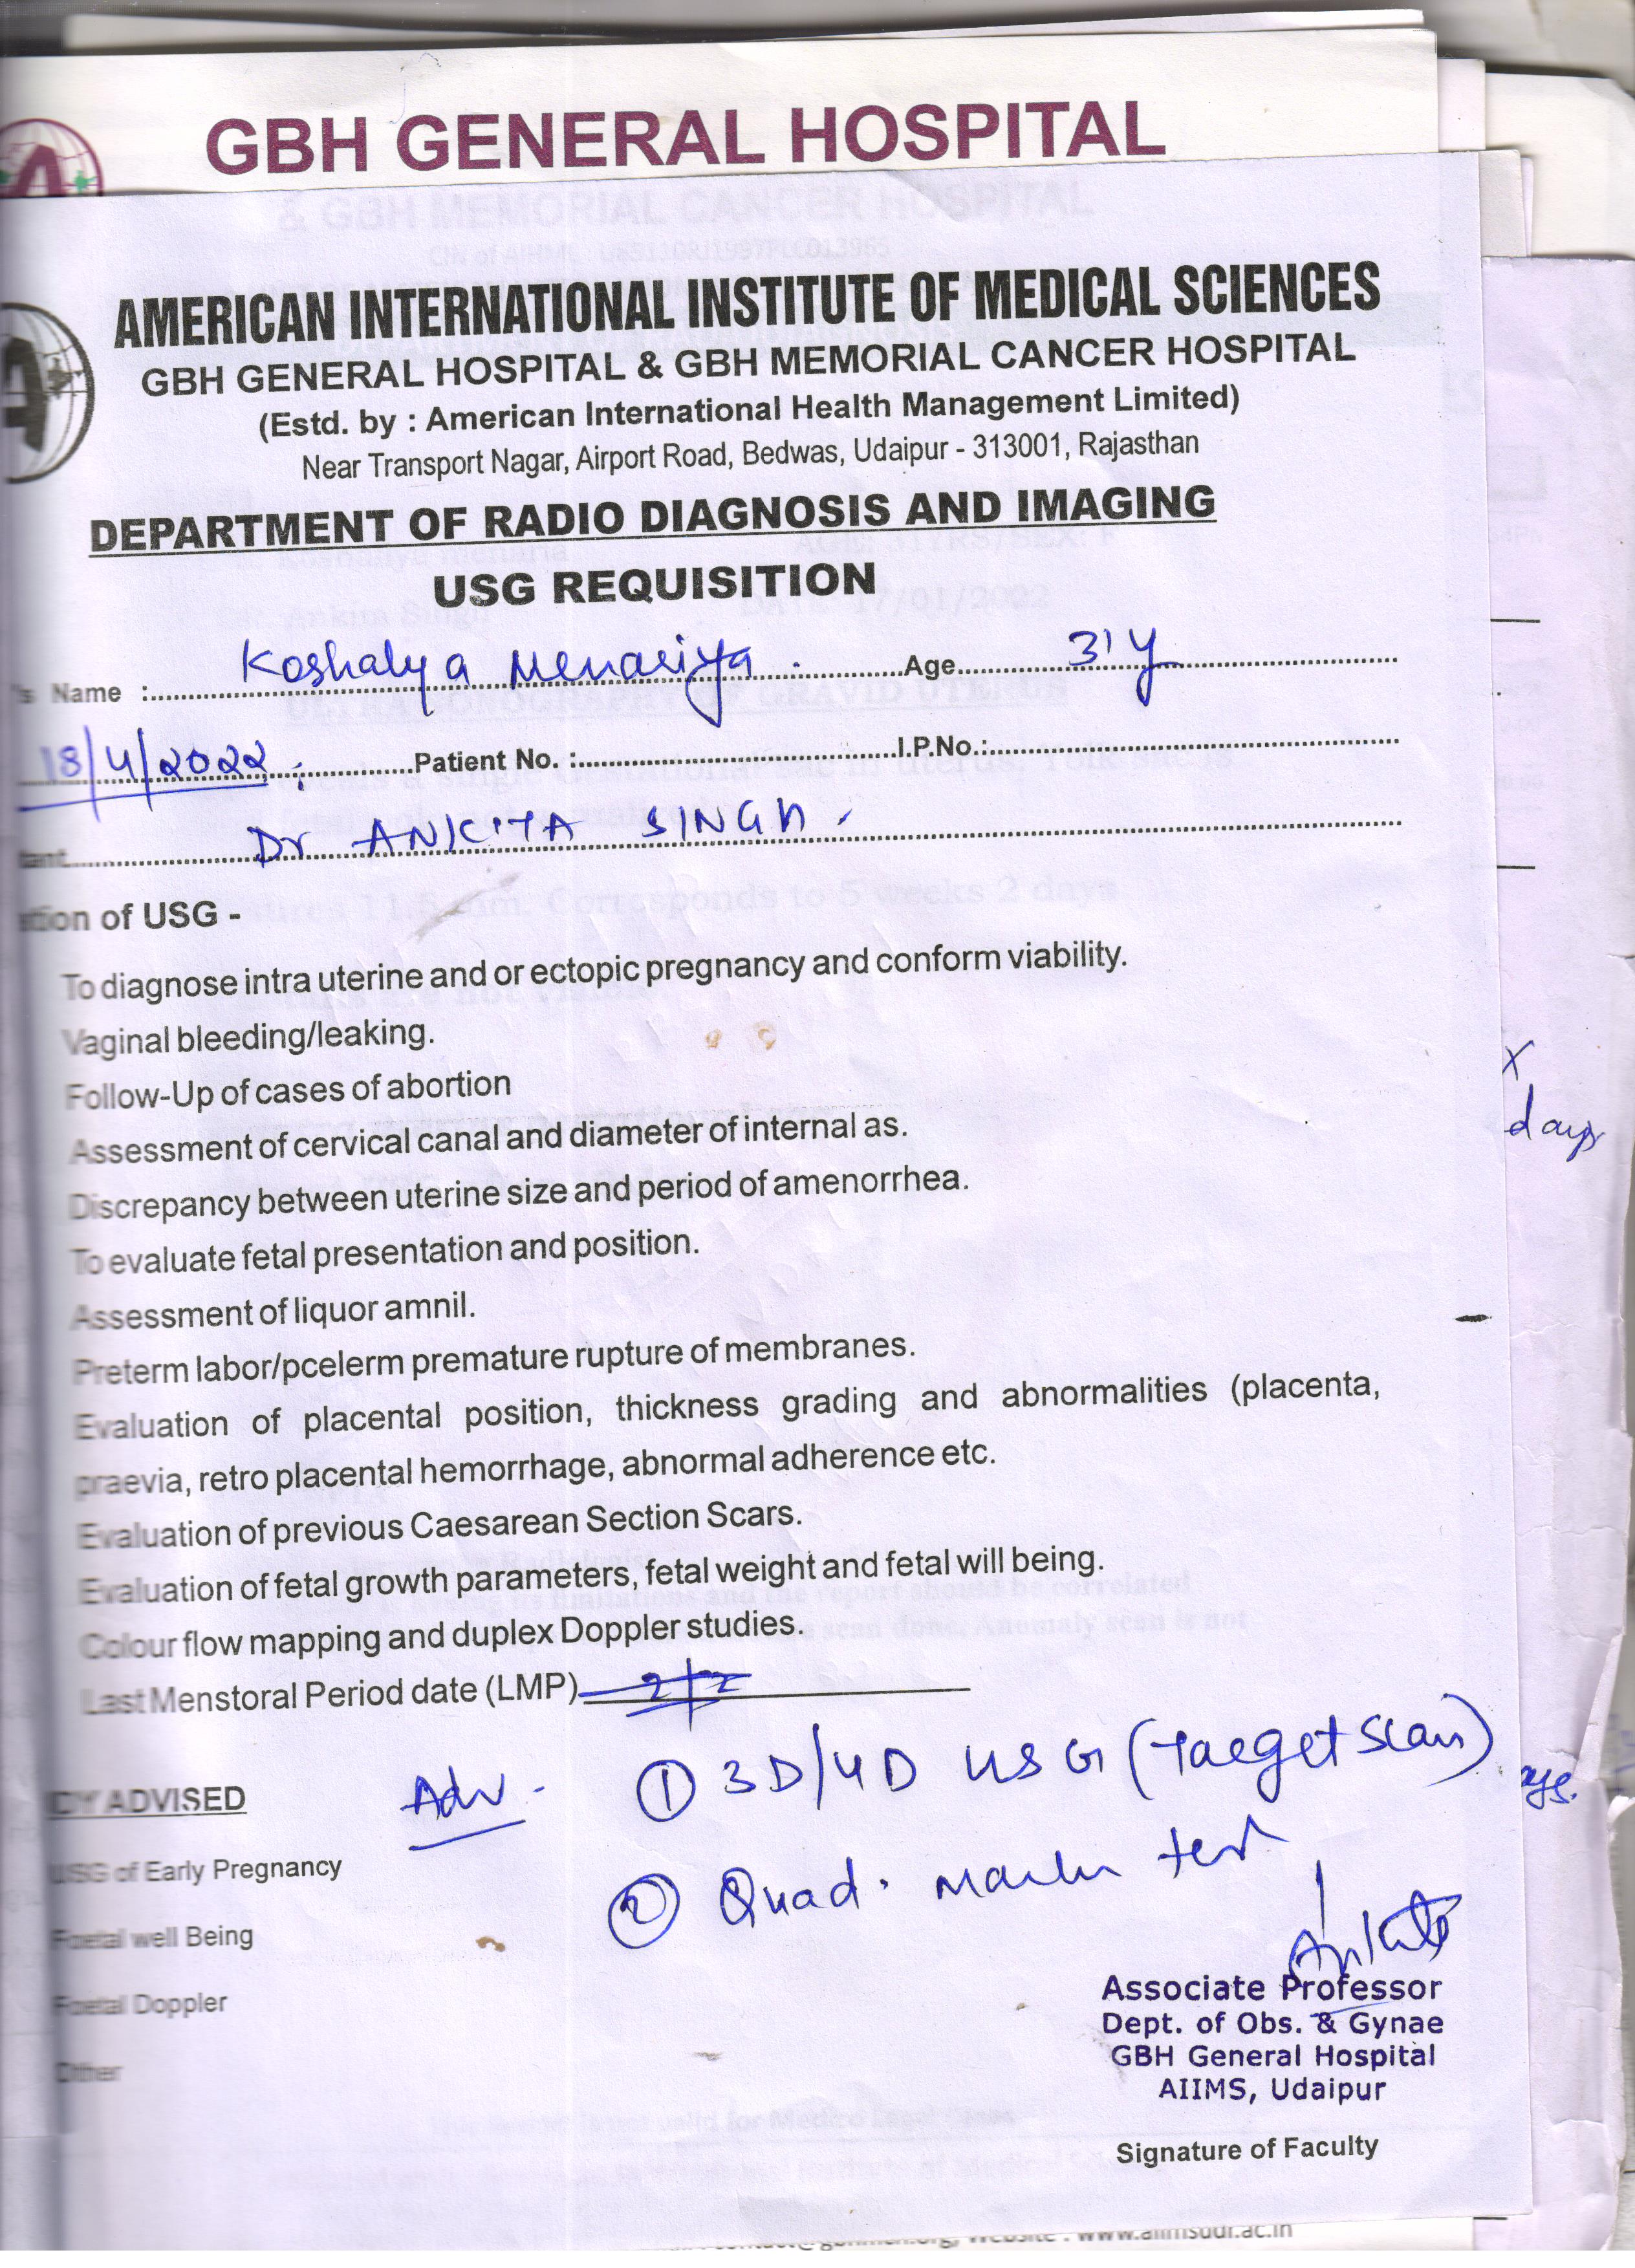 GBH GENERAL HOSPITAL
& GBH MEMORIAL CANCER HOSPITAL
AMERICAN INTERNATIONAL INSTITUTE OF MEDICAL SCIENCES
GBH GENERAL HOSPITAL & GBH MEMORIAL CANCER HOSPITAL
(Estd. by : American International Health Management Limited)
Near Transport Nagar, Airport Road, Bedwas, Udaipur - 313001, Rajasthan
DEPARTMENT OF RADIO DIAGNOSIS AND IMAGING
USG REQUISITION
's Name : Koshalya Menariya . Age 31 Y
18/4/2022 Patient No. : I.P.No.:
tant Dr ANKITA SINGH .
tion of USG -
To diagnose intra uterine and or ectopic pregnancy and conform viability.
Vaginal bleeding/leaking.
Follow-Up of cases of abortion
Assessment of cervical canal and diameter of internal as.
X
days
Discrepancy between uterine size and period of amenorrhea.
To evaluate fetal presentation and position.
Assessment of liquor amnil.
Preterm labor/pcelerm premature rupture of membranes.
Evaluation of placental position, thickness grading and abnormalities (placenta,
praevia, retro placental hemorrhage, abnormal adherence etc.
Evaluation of previous Caesarean Section Scars.
Evaluation of fetal growth parameters, fetal weight and fetal will being.
Colour flow mapping and duplex Doppler studies.
Last Menstoral Period date (LMP)
DY ADVISED
Adv - ① 3D/4D USG (Target Scan)
USG of Early Pregnancy
② Quad. Marker test
Foetal well Being
Foetal Doppler
Other
Ankita
Associate Professor
Dept. of Obs. & Gynae
GBH General Hospital
AIIMS, Udaipur
Signature of Faculty
Website : www.aiimsudr.ac.in